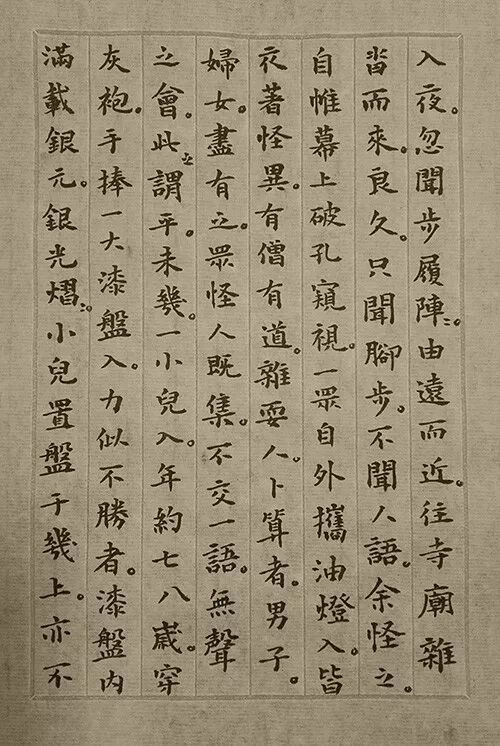 入夜。忽聞步履陣〻。由遠而近。往寺廟雜
沓而來。良久。只聞腳步。不聞人語。余怪之。
自帷幕上破孔窺視。一眾自外攜油燈入。皆
衣著怪異。有僧有道。雜耍人。卜算者。男子。
婦女。盡有之。眾怪人既集。不交一語。無聲
之會。此之謂乎。未幾。一小兒入。年約七八歲。穿
灰袍。手捧一大漆盤入。力似不勝者。漆盤內
滿載銀元。銀光熠〻。小兒置盤于幾上。亦不